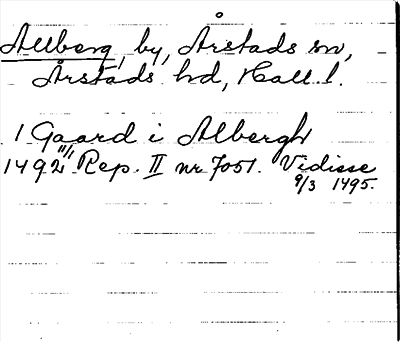 Allberg, by, Årstads sn,
Årstads hd, Hall. l.
1 Gaard i Albergh
1492 11/1 Rep. II nr 7051. Vidisse
9/3 1495.